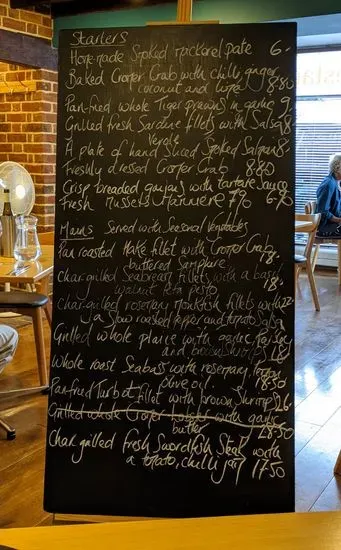 Starters
Homemade Smoked Mackerel pate 6-
Baked Cromer Crab with chilli, ginger
coconut and lime 8.80
Pan-fried whole Tiger prawns in garlic 9
Grilled fresh Sardine fillets with Salsa 8
Verde
A plate of hand Sliced Smoked Salmon 8
Freshly dressed Cromer Crab 8.80
Crisp breaded goujons with tartare Sauce
fresh Mussels Marinière 7.90 6.90
Mains Served with Seasonal Vegetables
Pan roasted Hake fillet with Cromer Crab
buttered Samphire 18.
Chargrilled Seabream fillets with a basil
walnut feta pesto 18.
Char-grilled rosemary Monkfish fillets with 22
a Slow roasted pepper and tomato Salsa
Grilled whole plaice with garlic, parsley
and brown Shrimps £18
Whole roast Seabass with rosemary, lemon
olive oil. 18.50
Pan-fried Turbot fillet with brown Shrimps 26
Grilled whole Cromer Lobster with garlic
butter £28.50
Chargrilled fresh Swordfish Steak with
a tomato, chilli jam 17.50